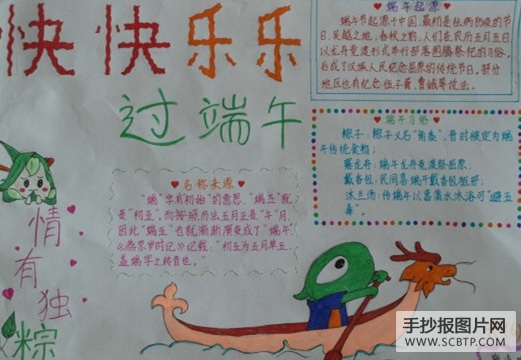 快快乐乐
过端午
端午起源
端午节起源于中国,最初是祛病防疫的节
日,吴越之地,春秋之前,人们在农历五月五日
以龙舟竞渡形式举行部落图腾祭祀的习俗,
后成了汉族人民纪念屈原的传统节日,部分
地区也有纪念伍子胥、曹娥等说法。
端午习俗
粽子:粽子又名"角黍",晋时被定为端
午传统食粮;
赛龙舟:端午龙舟竞渡祭屈原;
戴香包:民间喜端午戴香包驱邪;
沐兰汤:传端午以菖蒲水沐浴可"避五
毒"。
名称来源
"端"字有"初始"的意思,"端五"就
是"初五",而按照历法五月正是"午"月,
因此"端五"也就渐渐演变成了"端午"
《燕京岁时记》记载:"初五为五月单五,
盖端字之转音也。"
情
有
独
粽
手抄报图片网
WWW.SCBTP.COM